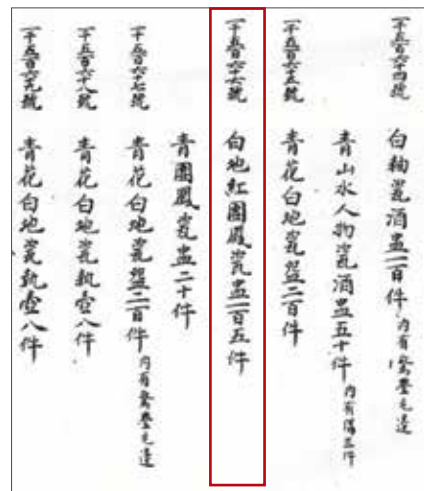 一千五百六十四號 白釉瓷酒盅一百件 內有驚璺毛邊
青山水人物瓷酒盅五十件 內有傷三件
一千五百六十五號 青花白地瓷盤二百件
一千五百六十六號 白地紅團鳳瓷盅一百五件
青團鳳瓷盅二十件
一千五百六十七號 青花白地瓷盤二百件 內有驚璺毛邊
一千五百六十八號 青花白地瓷執壺八件
一千五百六十九號 青花白地瓷執壺八件